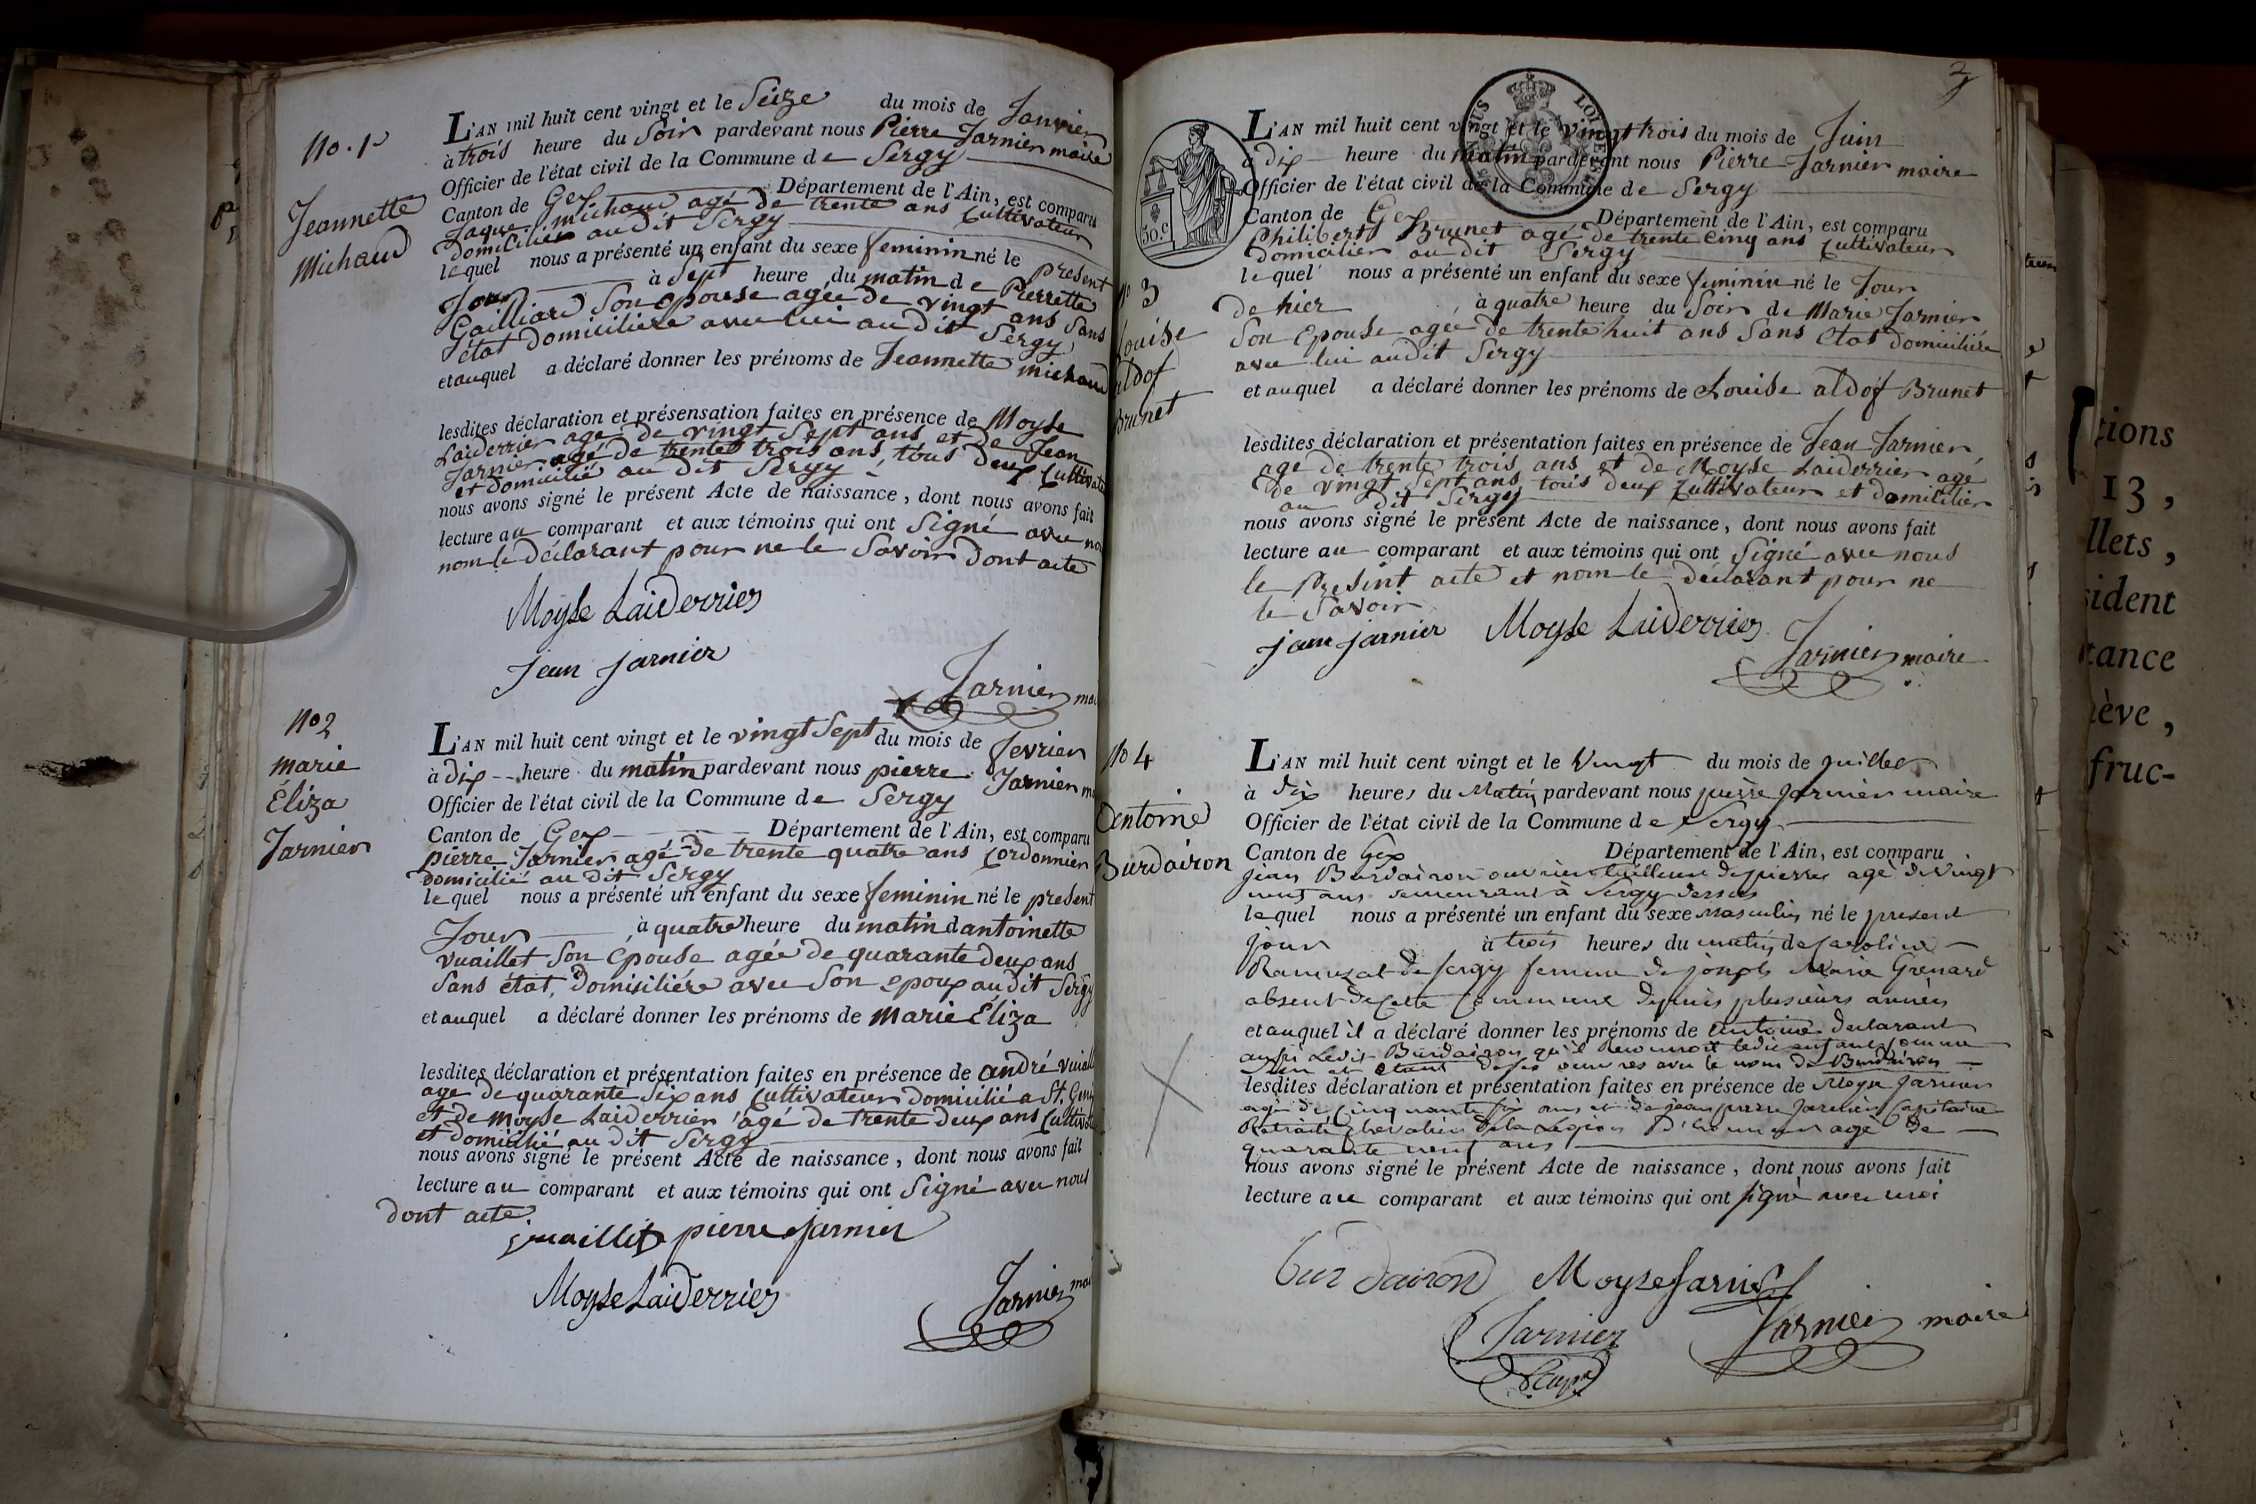 No. 1er
Jeannette
Michaud
L'AN mil huit cent vingt et le Seize du mois de Janvier
à trois heure du Soir pardevant nous Pierre Jarnier maire
Officier de l'état civil de la Commune de Sergy
Canton de Gex Département de l'Ain, est comparu
Jaque michaud agé de trente ans Cultivateur
domicilier au dit Sergy
lequel nous a présenté un enfant du sexe feminin né le present
Jour à Sept heure du matin de Pierrette
Gailliard Son epouse agée de vingt ans Sans
état domiciliére avec lui au dit Sergy
et auquel a déclaré donner les prénoms de Jeannette michaud
lesdites déclaration et présensation faites en présence de Moyse
Laiderrier age de vingt Sept ans et de Jean
Jarnier agé de trente trois ans, tous deux Cultivate
et domicilié au dit Sergy
nous avons signé le présent Acte de naissance, dont nous avons fait
lecture au comparant et aux témoins qui ont Signé avec no
nom le déclarant pour ne le Savoir dont acte
Moyse Laiderrier
jean jarnier
Jarnier mai
No 2
marie
Éliza
Jarnier
L'AN mil huit cent vingt et le vingt Sept du mois de fevrier
à dix heure du matin pardevant nous pierre Jarnier m
Officier de l'état civil de la Commune de Sergy
Canton de Gex Département de l'Ain, est comparu
pierre Jarnier agé de trente quatre ans Cordonnier
domicilié au dit Sergy
lequel nous a présenté un enfant du sexe feminin né le present
Jour à quatre heure du matin dantoinette
vuaillet Son épouse agée de quarante deux ans
Sans état, Domisiliére avec Son epoux au dit Sergy
et auquel a déclaré donner les prénoms de Marie Éliza
lesdites déclaration et présentation faites en présence de andré vuaill
age de quarante Six ans Cultivateur domicilié a St. Geni
et de Moyse Laiderrier agé de trente deux ans Cultiva
et domicilié au dit Sergy
nous avons signé le présent Acte de naissance, dont nous avons fait
lecture au comparant et aux témoins qui ont Signé avec nous
dont acte
pierre jarnier
Moyse Laiderrier
Jarnier mai
3
50.c
No 3
Louise
aldof
Brunet
L'AN mil huit cent vingt et le vingt trois du mois de Juin
à dix heure du matin pardevant nous Pierre Jarnier maire
Officier de l'état civil de la Commune de Sergy
Canton de Gex Département de l'Ain, est comparu
Philibert Brunet agé de trente Cinq ans Cultivateur
Domicilier au dit Sergy
lequel nous a présenté un enfant du sexe feminin né le Jour
de hier à quatre heure du Soir de Marie Jarnier
Son Epouse agée de trente huit ans Sans Etat domiciliére
avec lui audit Sergy
et auquel a déclaré donner les prénoms de Louise aldof Brunet
lesdites déclaration et présentation faites en présence de Jean Jarnier
age de trente trois ans et de Moyse Laiderrier agé
de vingt Sept ans tous deux Cultivateur et domicilier
au dit Sergy
nous avons signé le présent Acte de naissance, dont nous avons fait
lecture au comparant et aux témoins qui ont Signé avec nous
le Presint acte et nom le déclarant pour ne
le Savoir
jean jarnier Moyse Laiderrier
Jarnier maire
No 4
Antoine
Burdairon
L'AN mil huit cent vingt et le Vingt du mois de juillet
à dix heures du Matin pardevant nous pierre Jarnier maire
Officier de l'état civil de la Commune de Sergy
Canton de Gex Département de l'Ain, est comparu
jean Burdairon ouvrier tailleur de pierres agé de vingt
neuf ans demeurant à Sergy dessus
lequel nous a présenté un enfant du sexe masculin né le present
jour à trois heures du matin de caroline
Ramuzat de Sergy femme de joseph Marie Grenard
absent de cette Commune depuis plusieurs années
et auquel il a déclaré donner les prénoms de antoine declarant
aussi Ledit Burdairon qu'il Reconnoit ledit enfant comme
sien et etant de ses oeuvres avec le nom de Burdairon
lesdites déclaration et présentation faites en présence de Moyse Jarnier
agé de Cinquante six ans et de jean pierre Jarnier Capitaine
Retraité chevalier de la Legion D'honneur agé de
quarante neuf ans
nous avons signé le présent Acte de naissance, dont nous avons fait
lecture au comparant et aux témoins qui ont signé avec moi
Burdairon Moyse Jarnier
Jarnier Jarnier maire
tions
13,
llets,
sident
tance
nève,
fruc-